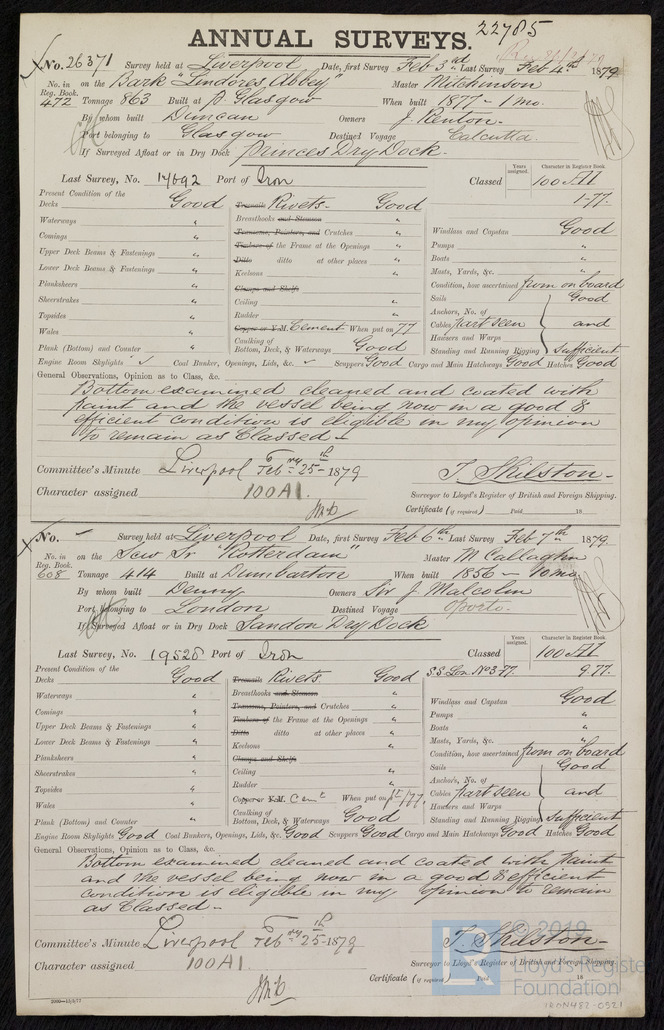 22785
ANNUAL SURVEYS.
No. 26371 Survey held at Liverpool Date, first Survey Feb 3rd Last Survey Feb 4th 1879
No. in Reg. Book. on the Bark "Lindores Abbey" Master Mitchinson
472 Tonnage 863 Built at P. Glasgow When built 1877 - 1 mo.
By whom built Duncan Owners J. Kenton.
Port belonging to Glasgow Destined Voyage Calcutta.
If Surveyed Afloat or in Dry Dock Princes Dry Dock.
Last Survey, No. 14692 Port of Iron Classed Years assigned. Character in Register Book 100 A1
1-77.
Present Condition of the
Decks Good Treenails Rivets - Good
Waterways " Breasthooks and Stemson " Windlass and Capstan Good
Comings " Transoms, Pointers, and Crutches " Pumps "
Upper Deck Beams & Fastenings " Timbers of the Frame at the Openings " Boats "
Lower Deck Beams & Fastenings " Ditto ditto at other places " Masts, Yards, &c. "
Planksheers " Keelsons " Condition, how ascertained from on board
Sheerstrakes " Clamps and Shelfs Sails Good
Topsides " Ceiling " Anchors, No. of
Wales " Rudder " Cables part seen and
Copper or Y.M. Cement When put on 77 Hawsers and Warps
Plank (Bottom) and Counter " Caulking of Bottom, Deck, & Waterways Good Standing and Running Rigging Sufficient
Engine Room Skylights ✓ Coal Bunker, Openings, Lids, &c. Scuppers Good Cargo and Main Hatchways Good Hatches Good
General Observations, Opinion as to Class, &c.
Bottom examined cleaned and coated with
paint and the vessel being now in a good &
efficient condition is eligible in my opinion
to remain as Classed
Committee's Minute Liverpool Feby 25th 1879
Character assigned 100A1. T. Skilston
Surveyor to Lloyd's Register of British and Foreign Shipping.
Certificate (if required) Paid 18
No. - Survey held at Liverpool Date, first Survey Feb 6th Last Survey Feb 7th 1879
No. in Reg. Book. on the Scw Sr "Rotterdam" Master McCallaghn
608 Tonnage 414 Built at Dumbarton When built 1856 - 10 mo.
By whom built Denny Owners Sir J Malcolm
Port belonging to London Destined Voyage Oporto.
If Surveyed Afloat or in Dry Dock Sandon Dry Dock
Last Survey, No. 19526 Port of Iron Classed Years assigned. Character in Register Book 100 A1
S.S. Lon. No 3-77. 9.77.
Present Condition of the
Decks Good Treenails Rivets Good
Waterways " Breasthooks and Stemson " Windlass and Capstan Good
Comings " Transoms, Pointers, and Crutches " Pumps "
Upper Deck Beams & Fastenings " Timbers of the Frame at the Openings " Boats "
Lower Deck Beams & Fastenings " Ditto ditto at other places " Masts, Yards, &c. "
Planksheers " Keelsons " Condition, how ascertained from on board
Sheerstrakes " Clamps and Shelfs Sails Good
Topsides " Ceiling " Anchors, No. of
Wales " Rudder " Cables part seen and
Copper or Y.M. Cemt When put on Hawsers and Warps
Plank (Bottom) and Counter " Caulking of Bottom, Deck, & Waterways Good Standing and Running Rigging Sufficient
Engine Room Skylights Good Coal Bunkers, Openings, Lids, &c. Good Scuppers Good Cargo and Main Hatchways Good Hatches Good
General Observations, Opinion as to Class, &c.
Bottom examined cleaned and coated with paint
and the vessel being now in a good & efficient
condition is eligible in my opinion to remain
as Classed -
Committee's Minute Liverpool Feby 25th 1879
Character assigned 100A1 T. Skilston
Surveyor to Lloyd's Register of British and Foreign Shipping.
Certificate (if required) Paid 18
© 2019
Lloyd's Register
Foundation
IRON482-0321